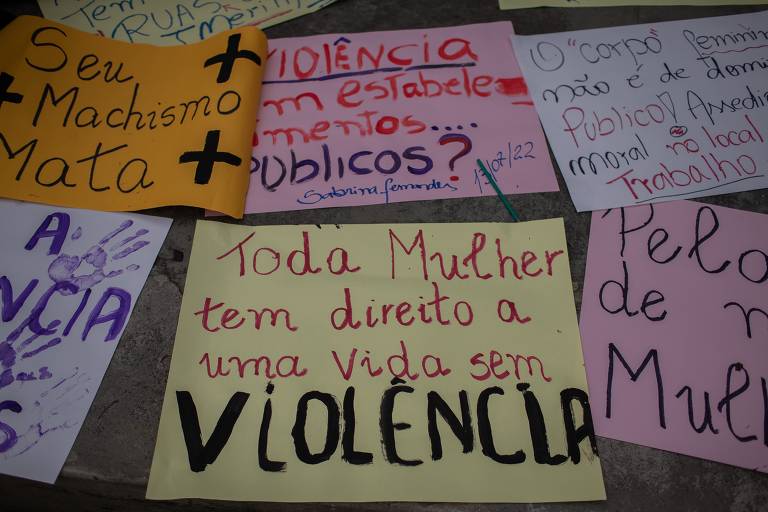 RUAS
Seu
Machismo
Mata
VIOLÊNCIA
em estabele-
PÚBLICOS?
Sabrina fernandes
13/07/22
O "corpo" feminino
não é de domi
Público! Assedi
moral no local
Trabalho
A
VCIA
S
Toda Mulher
tem direito a
uma vida sem
VIOLÊNCIA
Pelo
de
Mul